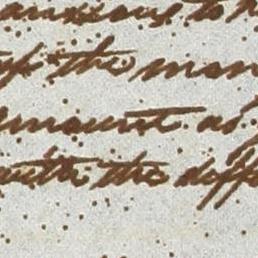 anxious to
of the man
amount as
with the diff